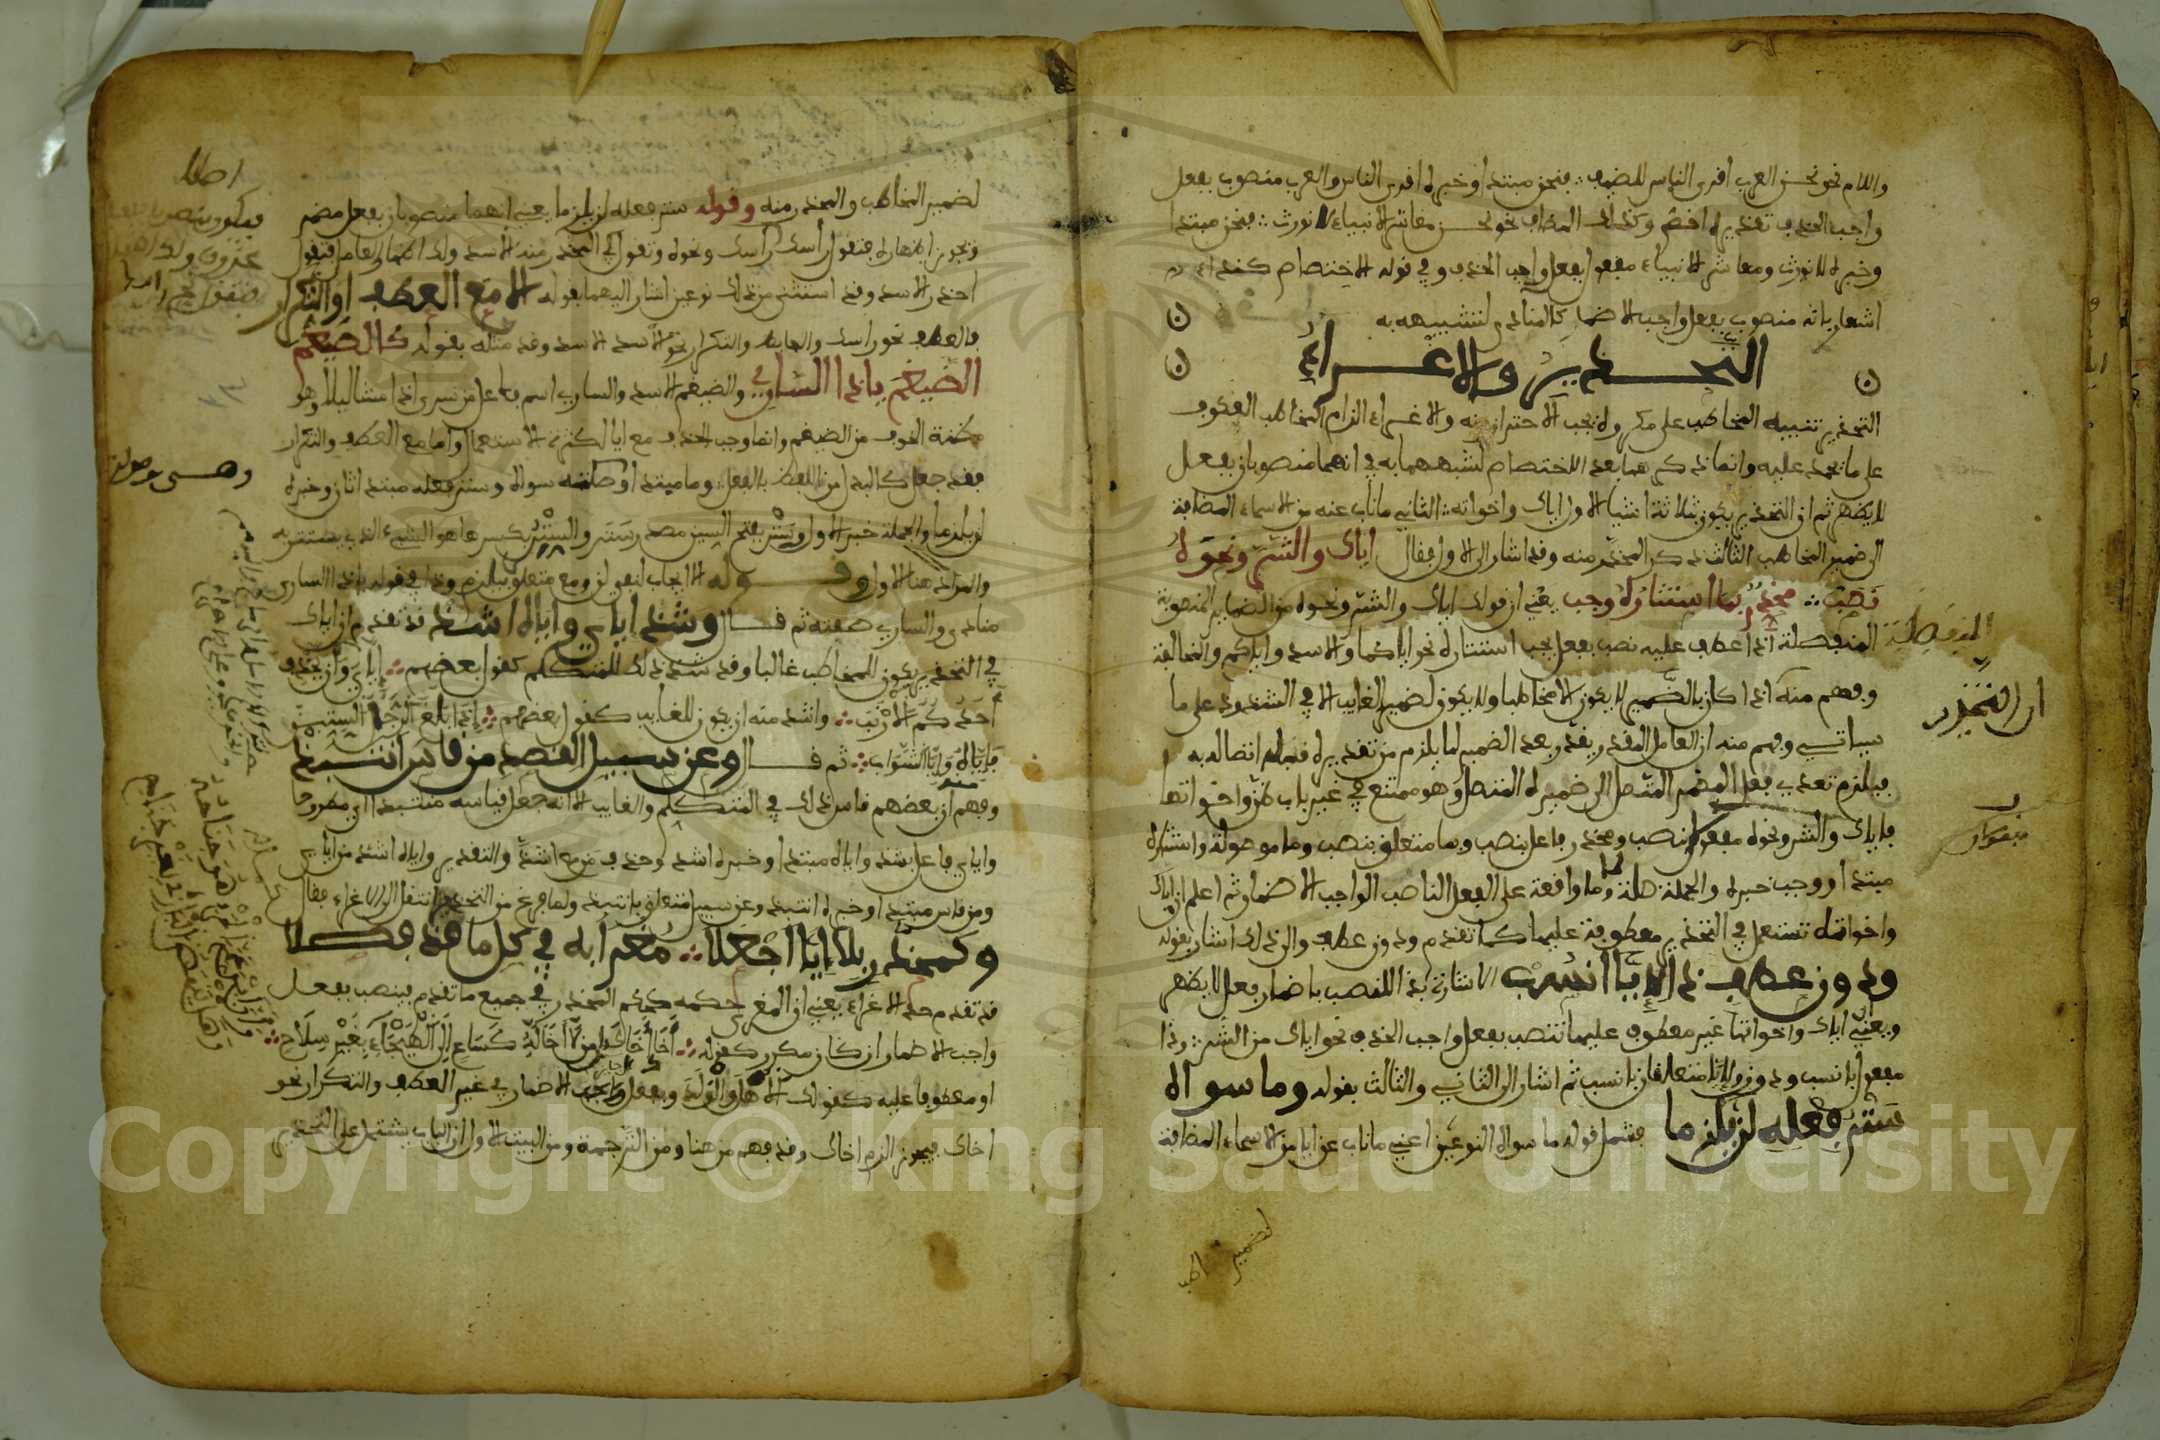 واللام نحو نحن العرب اقرى الناس للضيف فنحن مبتدا وخبره اقرى الناس والعرب منصوب بفعل
واجب الحذف تقديره اخص وكذلك المضاف نحو نحن معاشر الانبياء لا نورث فنحن مبتدا
وخبره لا نورث ومعاشر الانبياء مفعول بفعل واجب الحذف وفي قوله الاختصاص كنداء
اشعار بانه منصوب بفعل واجب الاضمار كالمنادى لتشبيهه به
التحذير والاغراء
التحذير تنبيه المخاطب على مكروه يجب الاحتراز منه والاغراء الزام المخاطب العكوف
على ما يحمد عليه وانما ذكرهما بعد الاختصاص لشبههما به في انهما منصوبان بفعل
لا يظهر ثم ان التحذير يكون بثلاثة اشياء الاول اياك واخواته الثاني ما ناب عنه من الاسماء المضافة
الى ضمير المخاطب الثالث ذكر المحذر منه وقد اشار الى الاول فقال اياك والشر ونحوه
نصب محذر بما استتاره وجب يعني ان قولك اياك والشر ونحوه من الضمائر المنصوبة
المنفصلة اذا عطف عليه نصب بفعل يجب استتاره نحو اياكما والاسد واياكم والمخالفة
وفهم منه اذا كان بالضمير لا يكون الا مخاطبا ولا يكون لضمير الغايب الا في الشذوذ على ما
سياتي وفهم منه ان العامل المقدر يقدر بعد الضمير لما يلزم من تقديره قبله اتصاله به
فيلزم تعدي فعل المضمر المتصل الى ضميره المتصل وهو ممتنع في غير باب ظن واخواتها
فاياك والشر ونحوه مفعول بنصب ومحذر فاعل بنصب وبما متعلق بنصب وما موصولة واستتاره
مبتدا ووجب خبره والجملة صلة وما واقعة على الفعل الناصب الواجب الاضمار ثم اعلم ان اياك
واخواته تستعمل في التحذير معطوفة عليها كما تقدم ودون عطف والى ذلك اشار بقوله
ودون عطف ذا لايا انسب الاشارة بذا للنصب باضمار فعل لا يظهر
ويعني اياك واخواتها غير معطوف عليها تنصب بفعل واجب الحذف نحو اياك من الشر وذا
مفعول بانسب ودون ولايا متعلقان بانسب ثم اشار الى الثاني والثالث بقوله وما سواه
ستر فعله لن يلزما فشمل قوله ما سواه النوعين اعني ما ناب عن ايا من الاسماء المضافة
المنفصلة
ان التحذير
لضمير المخاطب
لضمير المخاطب والمحذر منه وقوله ستر فعله لن يلزما يعني انهما منصوبان بفعل مضمر
ويجوز اظهاره فتقول راسك راسك ونحوه وتقول في المحذر منه الاسد ولك اظهار العامل فتقول
احذر الاسد وقد استثنى من ذلك نوعين اشار اليهما بقوله الا مع العطف او التكرار
فالعطف نحو راسك والحايط والتكرار نحو الاسد الاسد وقد مثله بقوله كالضيغم
الضيغم ياذا الساري والضيغم الاسد والساري اسم فاعل من سرى اذا مشى ليلا وهو
مظنة الخوف من الضيغم وانما وجب الحذف مع ايا لكثرة الاستعمال واما مع العطف والتكرار
فقد جعل كالبدل من اللفظ بالفعل وما مبتدا وصلته سواه وستر فعله مبتدا ثان وخبره
لن يلزما والجملة خبر الاول وستر بفتح السين مصدر ستر والستر بكسرها هو الشيء الذي يستتر به
والمراد هنا الاول وقوله الا ايجاب لنفي لن ومع متعلق بيلزم وذا في قوله ياذا الساري
منادى والساري صفته ثم قال وشذ اياي واياه اشذ قد تقدم ان اياك
في التحذير يكون للمخاطب غالبا وقد شذ ذلك للمتكلم كقول بعضهم اياي وان يحذف
احدكم الارنب واشذ منه ان يكون للغايب كقول بعضهم اذا بلغ الرجل الستين
فاياه وايا الشواب ثم قال وعن سبيل القصد من قاس انتبذ
وفهم ان بعضهم قاس ذلك في المتكلم والغايب الا انه جعل قياسه منتبذا اي مطروحا
واياي فاعل بشذ واياه مبتدا وخبره اشذ وحذف من مع اشذ والتقدير واياه اشذ من اياي
ومن قاس مبتدا وخبره انتبذ وعن سبيل متعلق بانتبذ ولما فرغ من التحذير انتقل الى الاغراء فقال
وكمحذر بلا ايا اجعلا مغرا به في كل ما قد فصلا
قد تقدم حد الاغراء يعني ان المغرى حكمه حكم المحذر في جميع ما تقدم فينصب بفعل
واجب الاضمار ان كان مكررا كقوله اخاك اخاك ان من لا اخا له كساع الى الهيجاء بغير سلاح
او معطوفا عليه كقولك الاهل والولد وبفعل جايز الاضمار في غير العطف والتكرار نحو
اخاك فيجوز الزم اخاك وقد فهم من هنا ومن الترجمة ومن البيت الاول ان الباب يشتمل على التحذير
وهي موصولة
Copyright © King Saud University